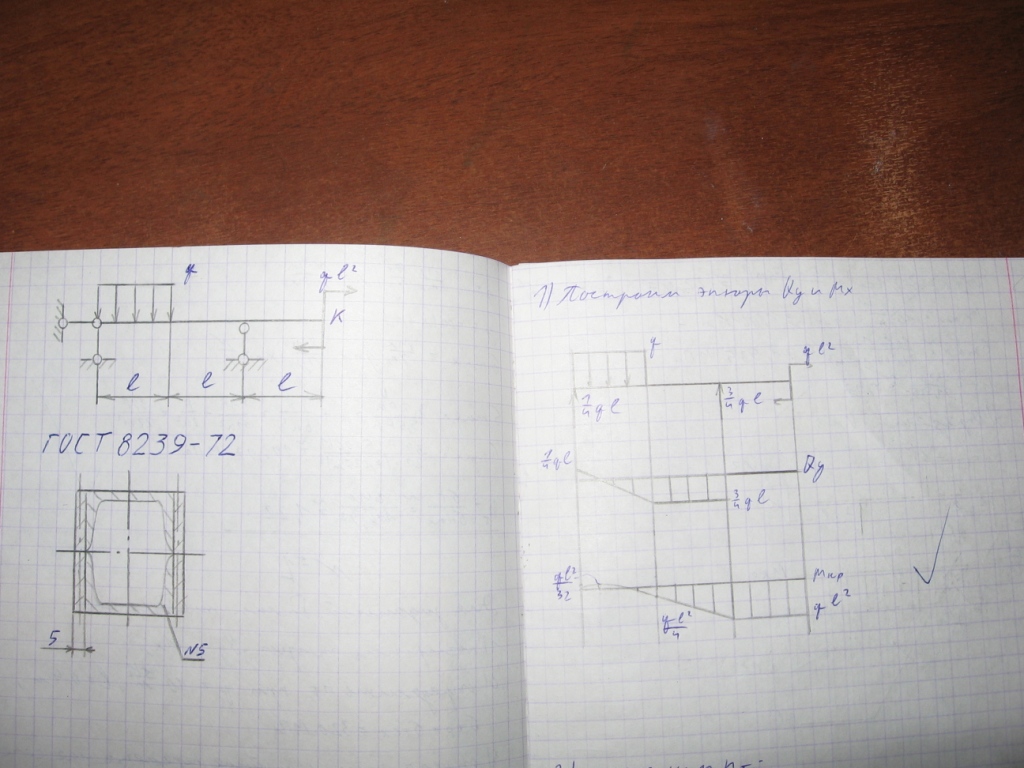 q
ql²
K
l
l
l
ГОСТ 8239-72
5
N5
1) Построим эпюры Qy и Mx
q
ql²
1/4 ql
3/4 ql
1/4 ql
Qy
3/4 ql
ql²/32
ql²/4
ql²